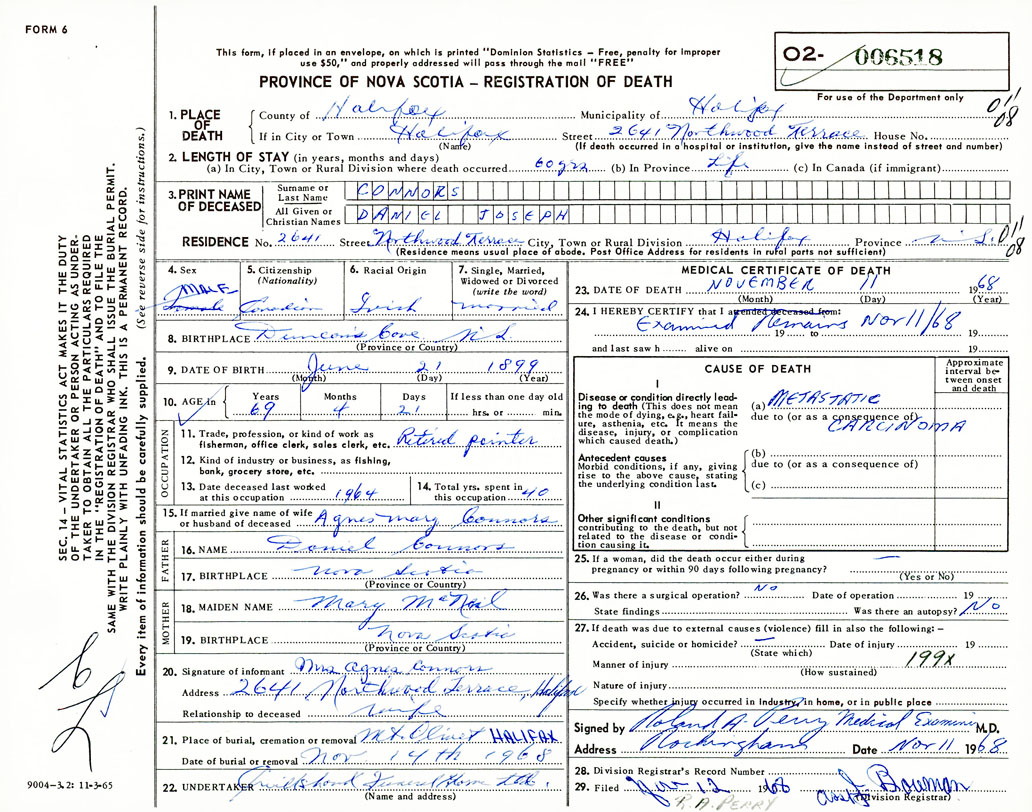 FORM 6
This form, if placed in an envelope, on which is printed "Dominion Statistics – Free, penalty for improper
use $50," and properly addressed will pass through the mail "FREE"
PROVINCE OF NOVA SCOTIA – REGISTRATION OF DEATH
02- 006518
For use of the Department only
011
08
1. PLACE OF DEATH
County of Halifax Municipality of Halifax
If in City or Town Halifax Street 2641 Northwood Terrace House No.
(Name) (If death occurred in a hospital or institution, give the name instead of street and number)
2. LENGTH OF STAY (in years, months and days)
(a) In City, Town or Rural Division where death occurred 60 yrs (b) In Province Life (c) In Canada (if immigrant)
3. PRINT NAME OF DECEASED
Surname or Last Name CONNORS
All Given or Christian Names DANIEL JOSEPH
RESIDENCE No. 2641 Street Northwood Terrace City, Town or Rural Division Halifax Province N.S. 011
08
(Residence means usual place of abode. Post Office Address for residents in rural parts not sufficient)
4. Sex MALE
5. Citizenship (Nationality) Canadian
6. Racial Origin Irish
7. Single, Married, Widowed or Divorced (write the word) married
8. BIRTHPLACE Duncans Cove N.S.
(Province or Country)
9. DATE OF BIRTH June 21 1899
(Month) (Day) (Year)
10. AGE in Years 69 Months 4 Days 21 If less than one day old hrs. or min.
OCCUPATION
11. Trade, profession, or kind of work as fisherman, office clerk, sales clerk, etc. Retired painter
12. Kind of industry or business, as fishing, bank, grocery store, etc.
13. Date deceased last worked at this occupation 1964
14. Total yrs. spent in this occupation 40
15. If married give name of wife or husband of deceased Agnes Mary Connors
FATHER
16. NAME Daniel Connors
17. BIRTHPLACE Nova Scotia
(Province or Country)
MOTHER
18. MAIDEN NAME Mary McNeil
19. BIRTHPLACE Nova Scotia
(Province or Country)
20. Signature of informant Mrs Agnes Connors
Address 2641 Northwood Terrace, Halifax
Relationship to deceased wife
21. Place of burial, cremation or removal Mt. Olivet HALIFAX
Date of burial or removal Nov 14th 1968
22. UNDERTAKER Funeral Home Ltd.
(Name and address)
MEDICAL CERTIFICATE OF DEATH
23. DATE OF DEATH NOVEMBER 11 1968
(Month) (Day) (Year)
24. I HEREBY CERTIFY that I attended deceased from:
Examined Remains Nov 11/68
19 to 19
and last saw h alive on 19
CAUSE OF DEATH
Approximate interval between onset and death
I
Disease or condition directly leading to death (This does not mean the mode of dying, e.g., heart failure, asthenia, etc. It means the disease, injury, or complication which caused death.)
(a) METASTATIC
due to (or as a consequence of)
CARCINOMA
Antecedent causes
Morbid conditions, if any, giving rise to the above cause, stating the underlying condition last.
(b)
due to (or as a consequence of)
(c)
II
Other significant conditions
contributing to the death, but not related to the disease or condition causing it.
25. If a woman, did the death occur either during pregnancy or within 90 days following pregnancy? —
(Yes or No)
26. Was there a surgical operation? No Date of operation 19
State findings Was there an autopsy? No
27. If death was due to external causes (violence) fill in also the following: –
Accident, suicide or homicide? — Date of injury 19
(State which)
Manner of injury 199X
(How sustained)
Nature of injury
Specify whether injury occurred in industry, in home, or in public place
Signed by Roland A. Perry Medical Examiner M.D.
Address Rockingham Date Nov 11 1968
28. Division Registrar's Record Number
29. Filed 12 1968 Bowman
(Division Registrar)
R. A. PERRY
SEC. 14 – VITAL STATISTICS ACT MAKES IT THE DUTY
OF THE UNDERTAKER OR PERSON ACTING AS UNDER-
TAKER TO OBTAIN ALL THE PARTICULARS REQUIRED
IN THE "REGISTRATION OF DEATH" AND TO FILE THE
SAME WITH THE DIVISION REGISTRAR WHO SHALL ISSUE THE BURIAL PERMIT.
WRITE PLAINLY WITH UNFADING INK. THIS IS A PERMANENT RECORD.
Every item of information should be carefully supplied. (See reverse side for instructions.)
9004-3.2: 11-3-65